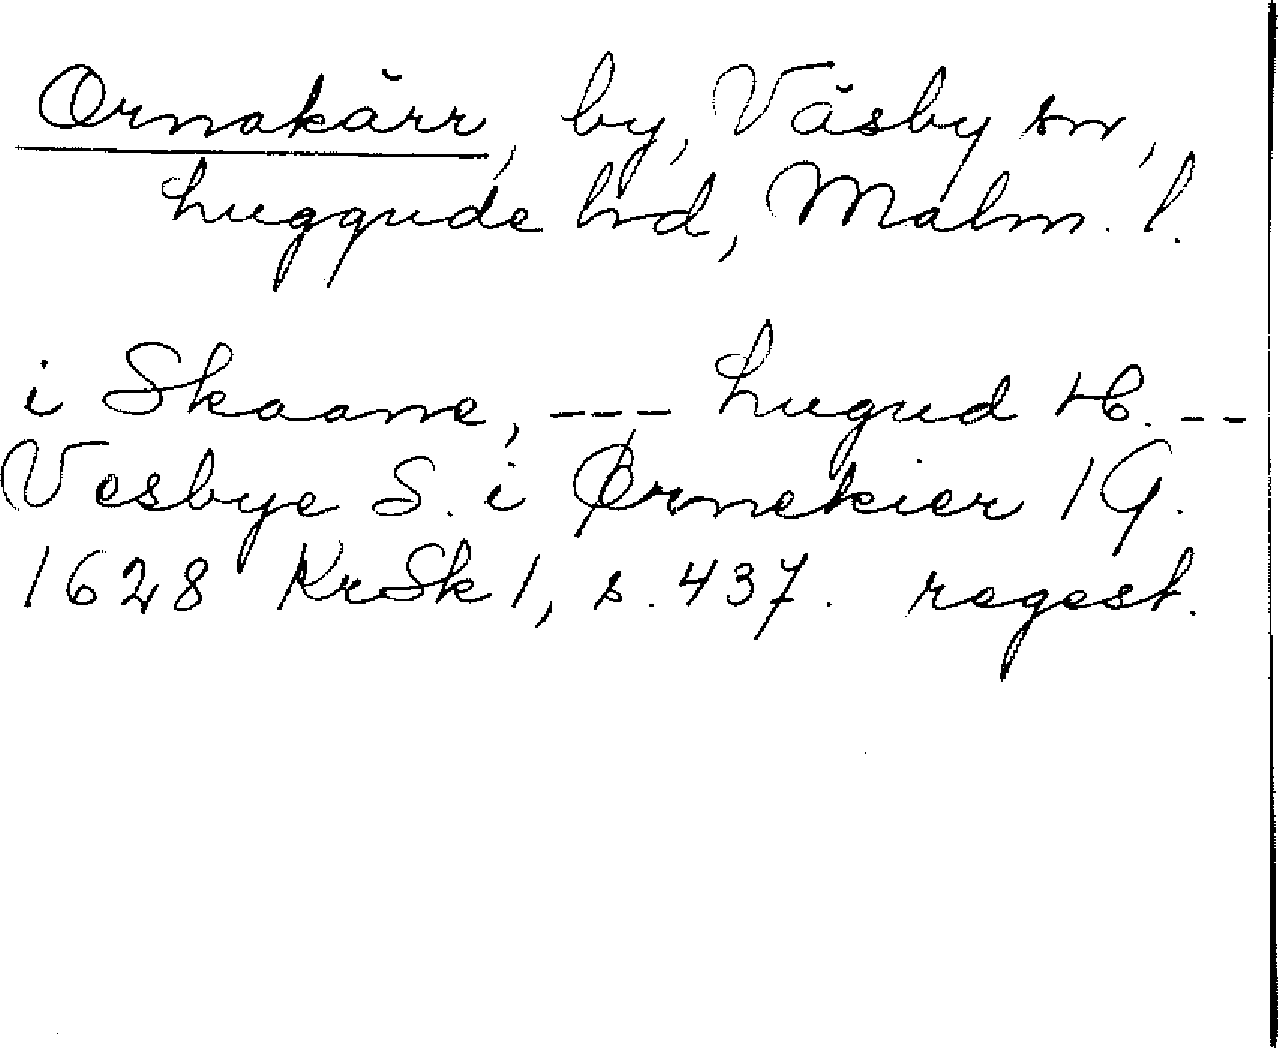 Ornakärr, by, Väsby sn,
Luggude hd, Malm. l.
i Skaane, --- Lugud H. --
Vesbye S. i Ørnekier 1 G.
1628 KrSk 1, s. 437. regest.